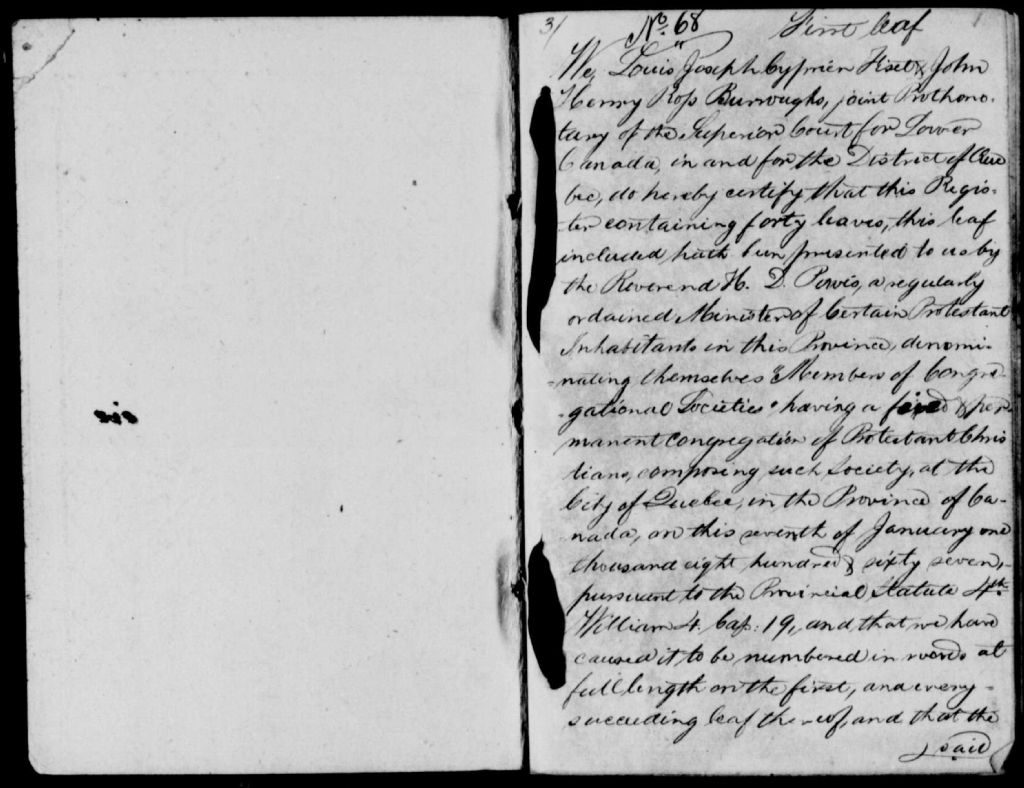 3/ No. 68 First leaf 1
We, Louis Joseph Cyprien Fiset & John
Henry Ross Burroughs, joint Prothono-
tary of the Superior Court for Lower
Canada, in and for the District of Que
bec, do hereby certify that this Regis-
-ter containing forty leaves, this leaf
included hath been presented to us by
the Reverend H. D. Powis, a regularly
ordained Minister of Certain Protestant
Inhabitants in this Province, denomi-
-nating themselves "Members of Congre-
-gational Societies" having a fixed & per
manent congregation of Protestant Chris
tians, composing such Society, at the
City of Quebec, in the Province of Ca-
nada, on this seventh of January one
thousand eight hundred & sixty seven,
pursuant to the Provincial Statute 4th.
William 4. Cap: 19, and that we have
caused it to be numbered in words at
full length on the first, and every
succeeding leaf thereof, and that the
said